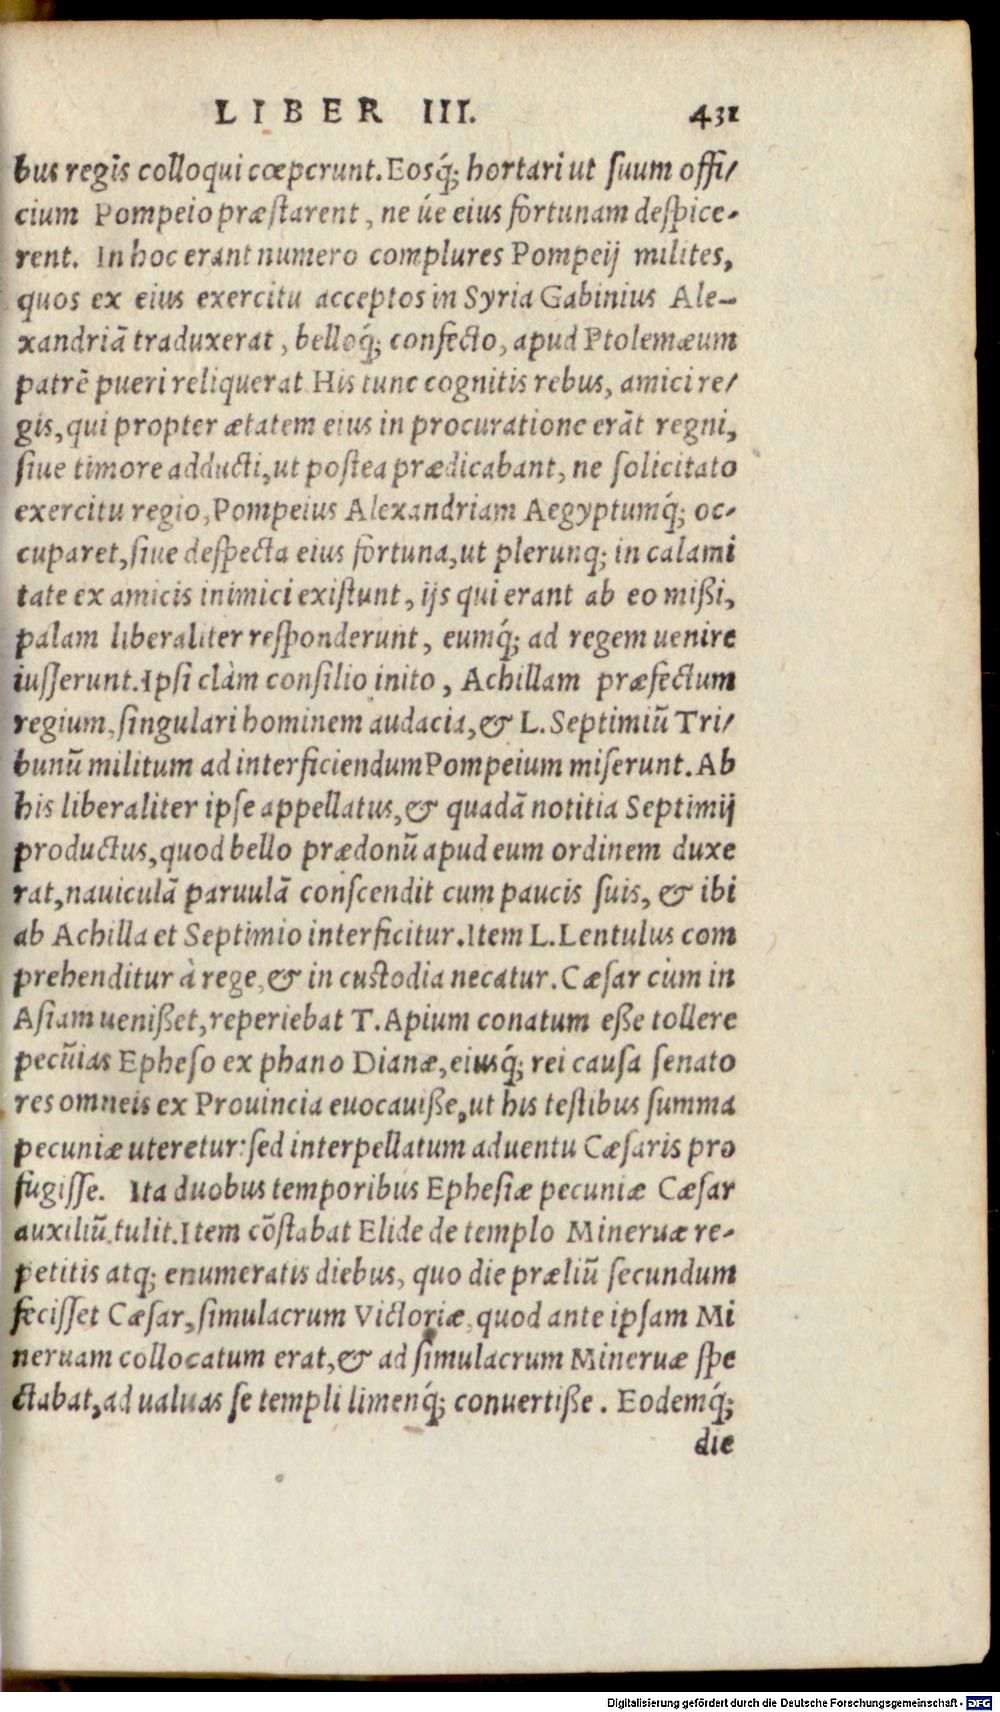 LIBER III. 431
bus regis colloqui cœperunt. Eosq́; hortari ut suum offi/
cium Pompeio præstarent, ne úe eius fortunam despice-
rent. In hoc erant numero complures Pompeij milites,
quos ex eius exercitu acceptos in Syria Gabinius Ale-
xandriã traduxerat, belloq́; confecto, apud Ptolemæum
patrẽ pueri reliquerat. His tunc cognitis rebus, amici re/
gis, qui propter ætatem eius in procuratione erãt regni,
siue timore adducti, ut postea prædicabant, ne solicitato
exercitu regio, Pompeius Alexandriam Aegyptumq́; oc-
cuparet, siue despecta eius fortuna, ut plerunq; in calami
tate ex amicis inimici existunt, ijs qui erant ab eo mißi,
palam liberaliter responderunt, eumq́; ad regem uenire
iusserunt. Ipsi clàm consilio inito, Achillam præfectum
regium, singulari hominem audacia, & L. Septimiũ Tri/
bunũ militum ad interficiendum Pompeium miserunt. Ab
his liberaliter ipse appellatus, & quadã notitia Septimij
productus, quod bello prædonũ apud eum ordinem duxe
rat, nauiculã paruulã conscendit cum paucis suis, & ibi
ab Achilla et Septimio interficitur. Item L. Lentulus com
prehenditur à rege, & in custodia necatur. Cæsar cùm in
Asiam uenißet, reperiebat T. Apium conatum eße tollere
pecũias Epheso ex phano Dianæ, eiusq́; rei causa senato
res omneis ex Prouincia euocauiße, ut his testibus summa
pecuniæ uteretur: sed interpellatum aduentu Cæsaris pro
fugisse. Ita duobus temporibus Ephesiæ pecuniæ Cæsar
auxiliũ tulit. Item cõstabat Elide de templo Mineruæ re-
petitis atq; enumeratis diebus, quo die præliũ secundum
fecisset Cæsar, simulacrum Victoriæ, quod ante ipsam Mi
neruam collocatum erat, & ad simulacrum Mineruæ spe
ctabat, ad ualuas se templi limenq́; conuertiße. Eodemq́;
die
Digitalisierung gefördert durch die Deutsche Forschungsgemeinschaft - DFG